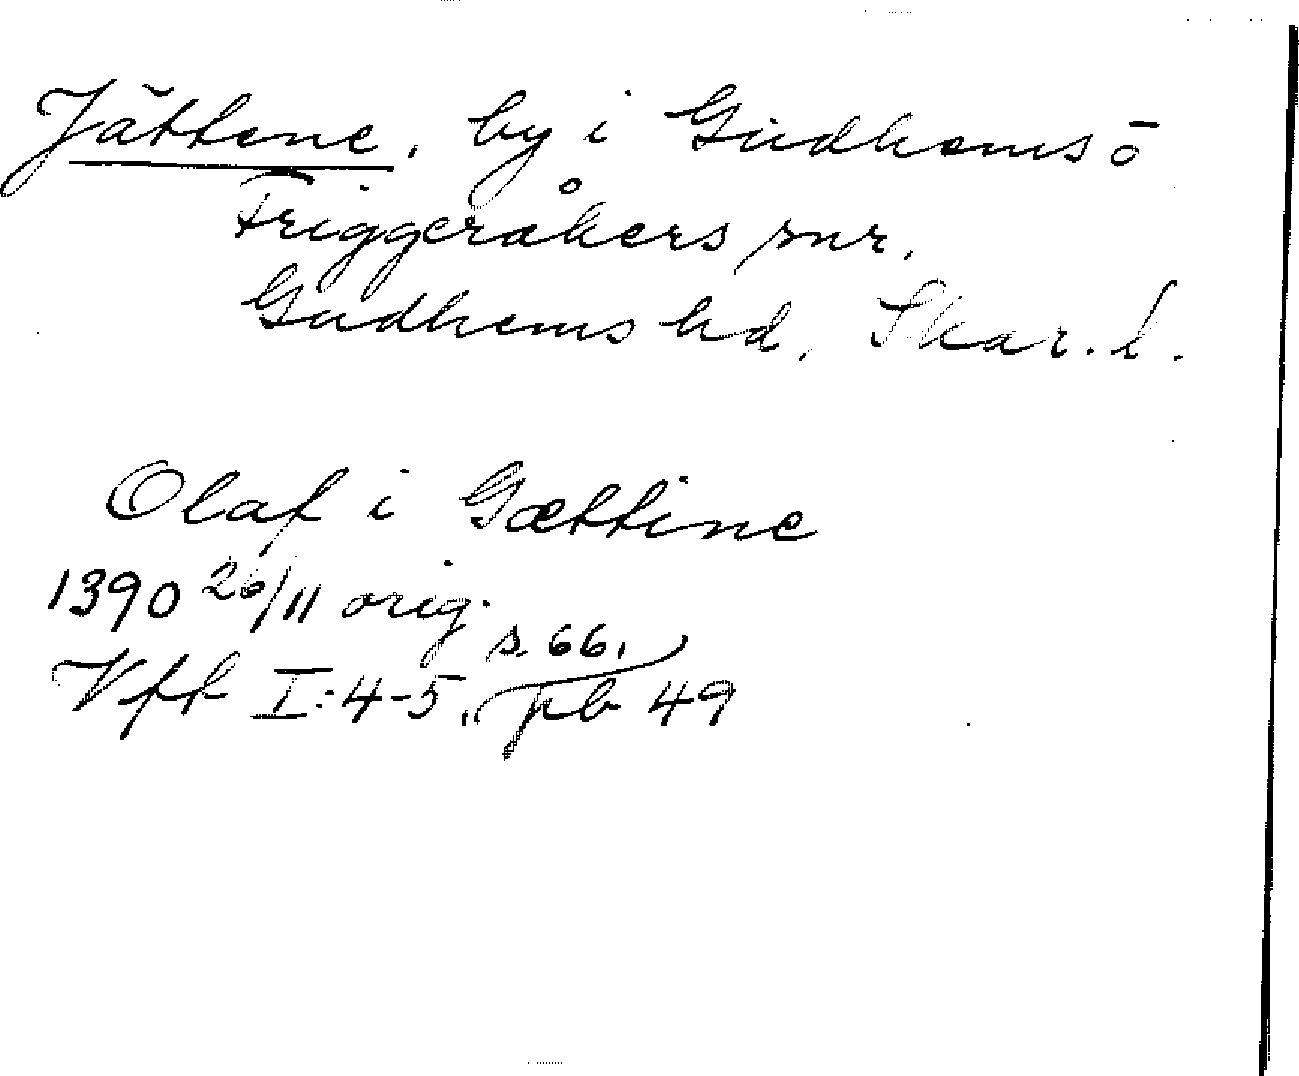 Jättene, by i Gudhems o
Friggeråkers snr,
Gudhems hd, Skar. l.
Olaf i Gættine
1390 26/11 orig.
s. 66.
Vff I:4-5, pb 49